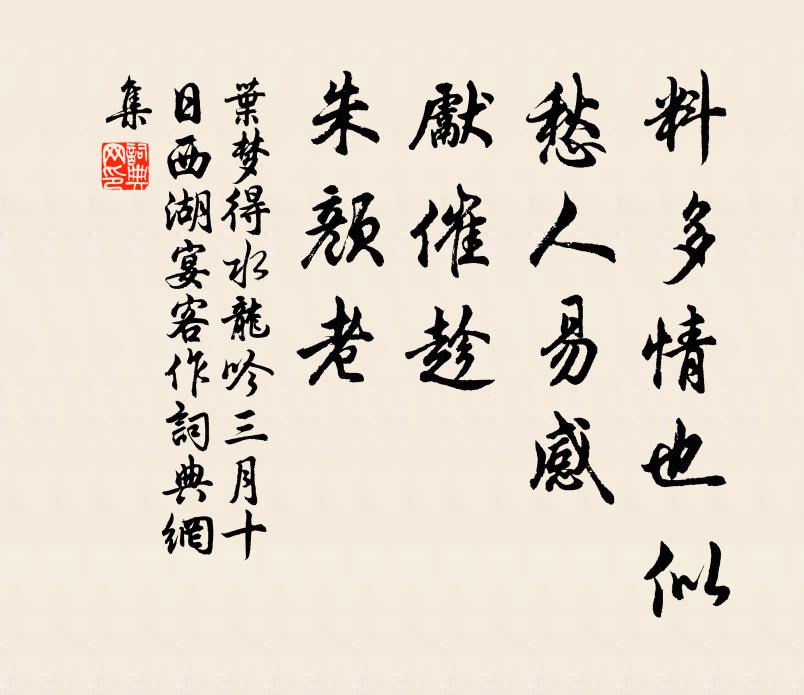 料多情也似
愁人易感
獻催趁
朱顏老
葉梦得水龍吟三月十
日西湖宴客作詞典網
集
詞典
网印